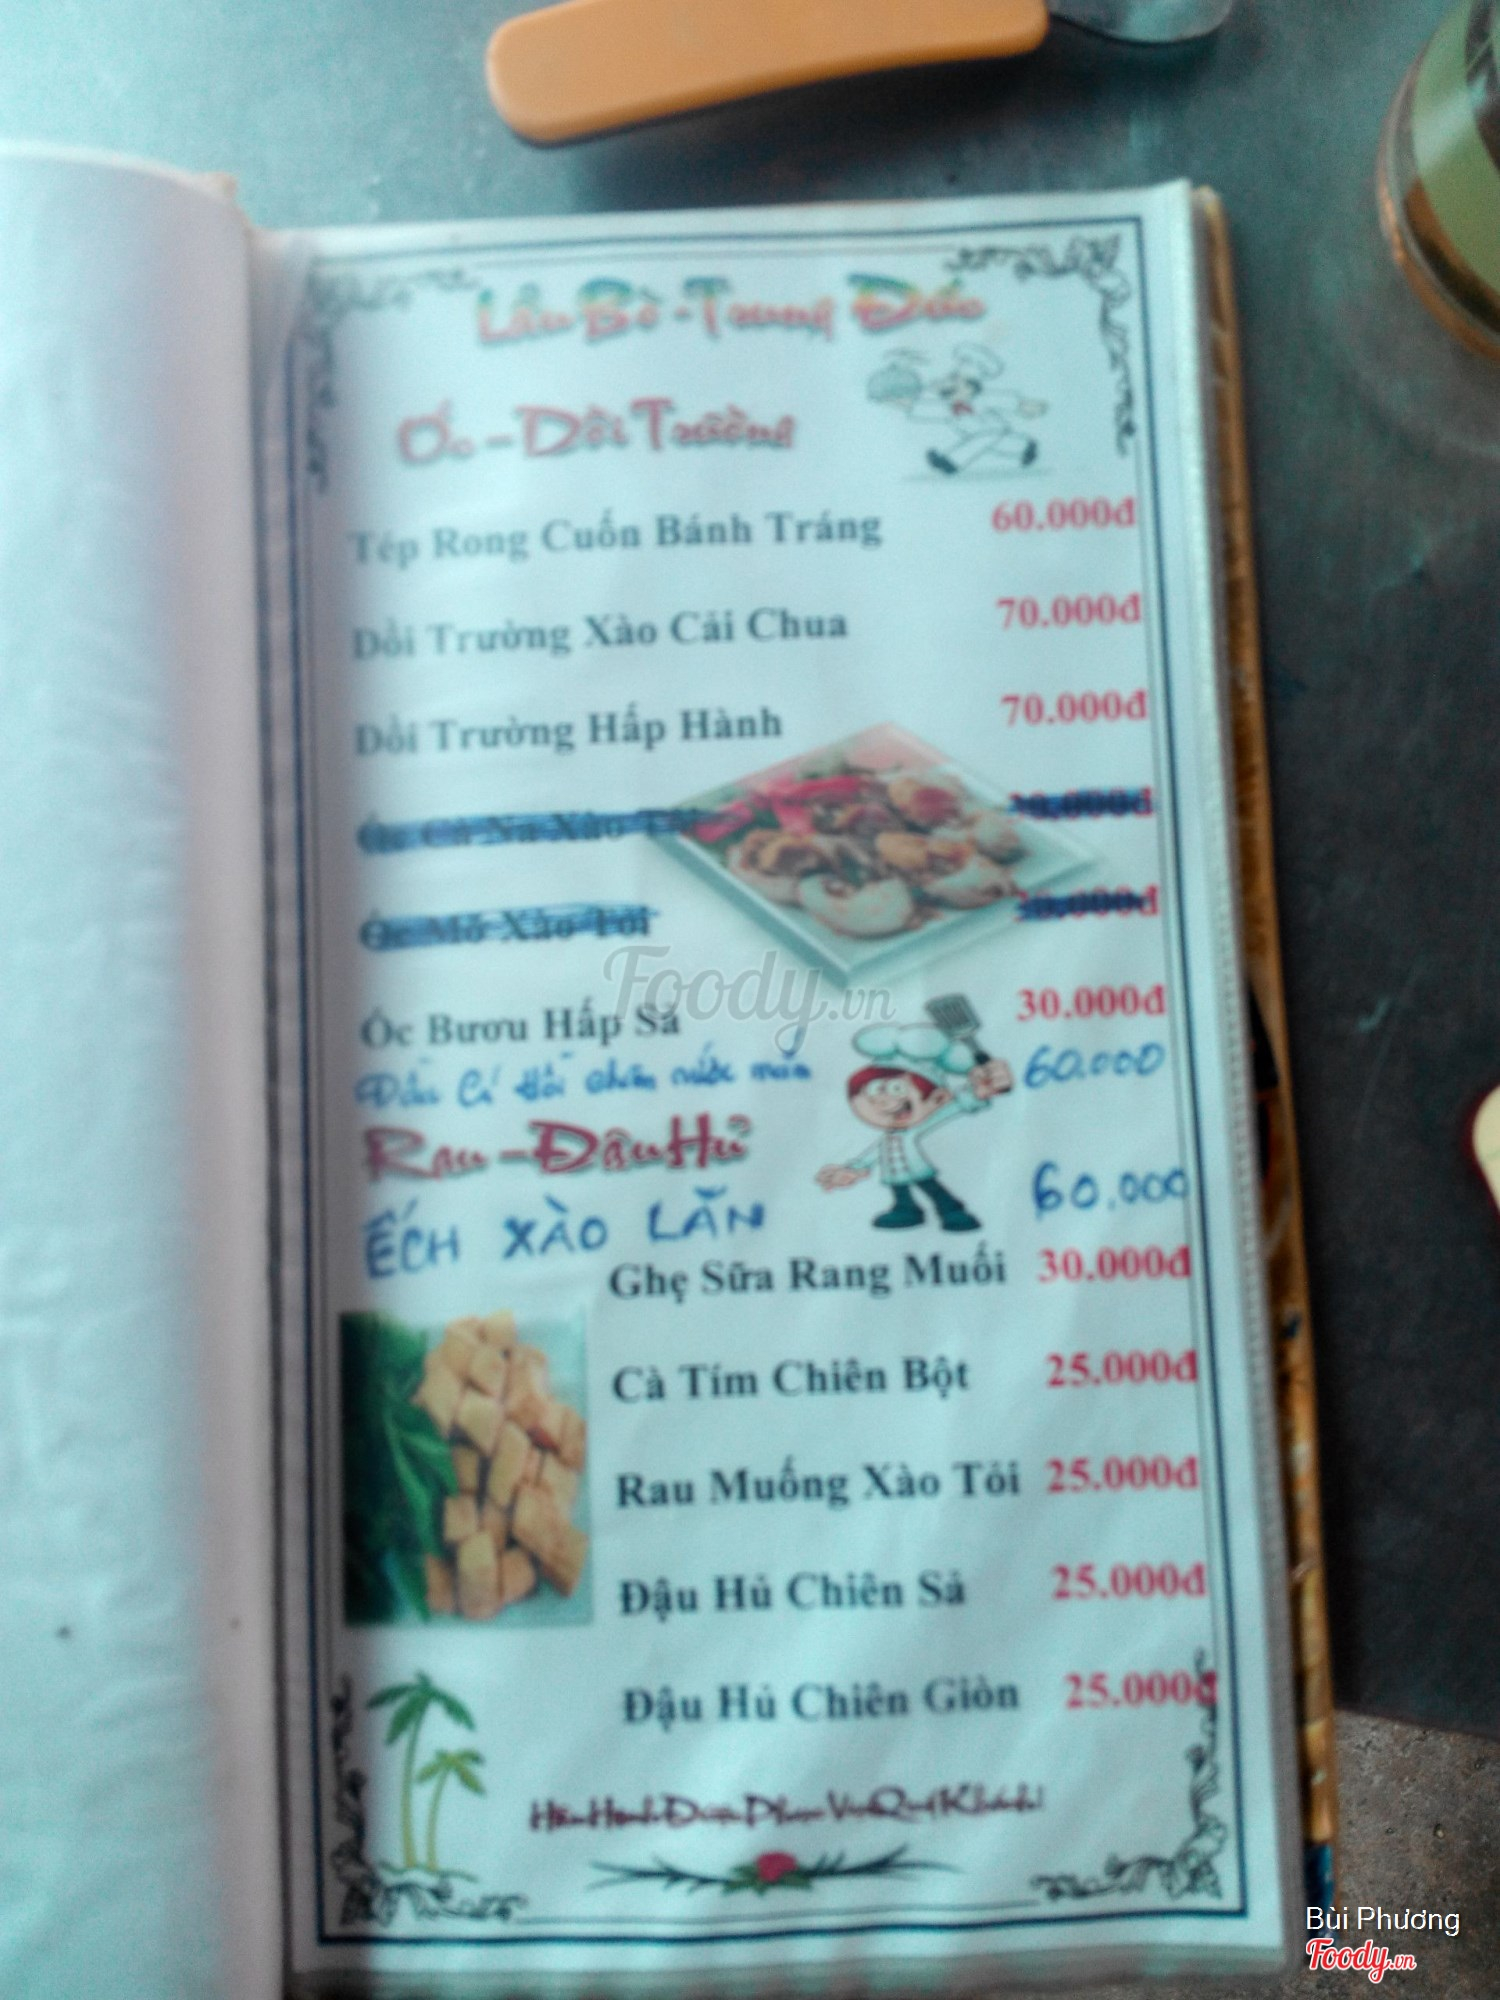 Lẩu Bò - Trung Đức
Ốc - Dồi Trường
Tép Rong Cuốn Bánh Tráng 60.000đ
Dồi Trường Xào Cải Chua 70.000đ
Dồi Trường Hấp Hành 70.000đ
Ốc Cà Na Xào Tỏi
Ốc Mỡ Xào Tỏi
Ốc Bươu Hấp Sả 30.000đ
Đầu Cá Hồi nước mắm 60.000
Rau - Đậu Hủ
ẾCH XÀO LĂN 60.000
Ghẹ Sữa Rang Muối 30.000đ
Cà Tím Chiên Bột 25.000đ
Rau Muống Xào Tỏi 25.000đ
Đậu Hủ Chiên Sả 25.000đ
Đậu Hủ Chiên Giòn 25.000đ
Hân Hạnh Được Phục Vụ Quý Khách!
Foody.vn
Bùi Phương
Foody.vn